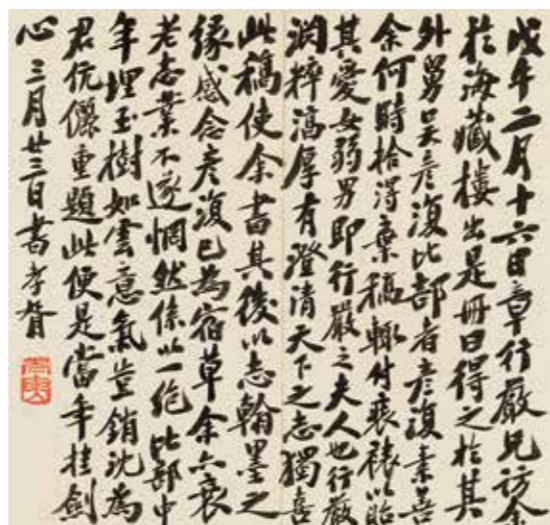 戊午二月十六日章行嚴兄訪余
於海藏樓出是冊曰得之於其
外舅吴彥復比部者彥復素善
余何時拾得棄稿輒付裝裱以貽
其愛女弱男即行嚴之夫人也行嚴
潤粹渴厚有澄清天下之志獨喜
此稿使余書其後以志翰墨之
緣感念彥復已為宿草余亦衰
老志業不遂惘然係以一絶比部中
年埋玉樹如雲意氣豈銷沈為
君伉儷重題此便是當年挂劍
心三月廿三日書孝胥